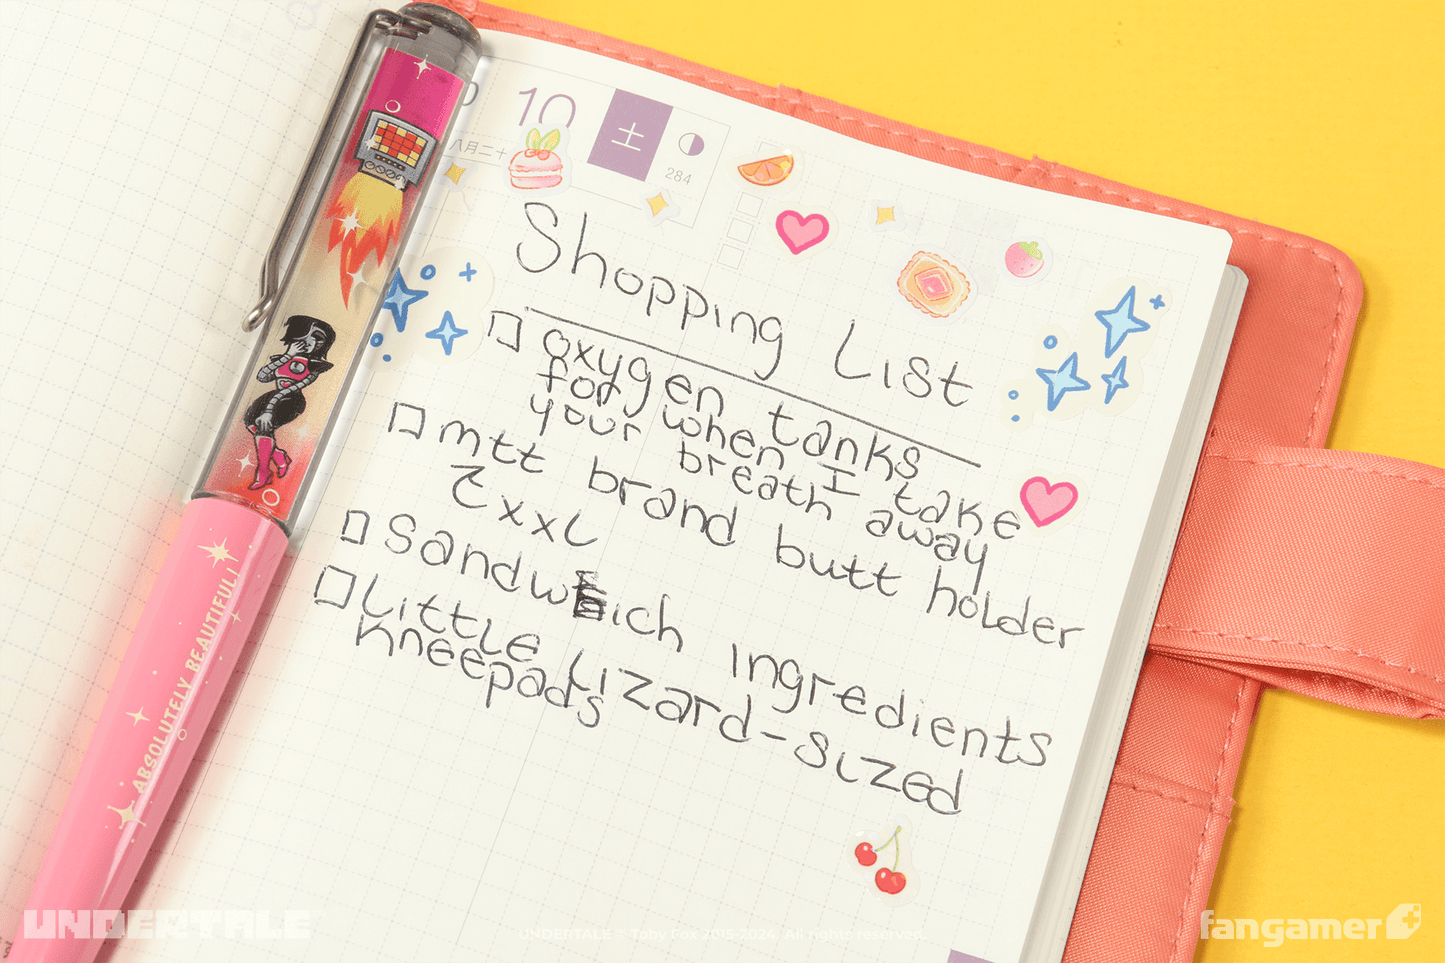 10
土
八月二十
284
Shopping List
oxygen tanks
for when I take
your breath away
mtt brand butt holder
2xxL
Sandwich ingredients
Little Lizard-sized
kneepads
ABSOLUTELY BEAUTIFUL!
UNDERTALE
UNDERTALE © Toby Fox 2015-2024. All rights reserved.
fangamer